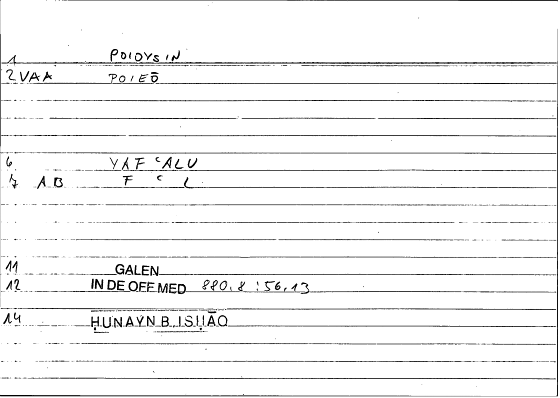 1 POIOYSIN
2 VAA POIEŌ
6 YAFʿALU
7 AB F ʿ L
11 GALEN
12 IN DE OFF MED 880,8 : 56,13
14 ḤUNAYN B. ISḤĀQ